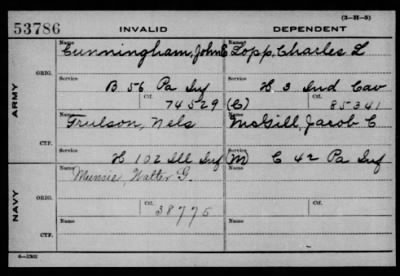 (3-H-8)
53786 INVALID DEPENDENT
Name Name
Cunningham, John E Lopp, Charles L
ORIG. Service Service
B 56 Pa Inf H 3 Ind Cav
Ctf. Ctf.
74529 (C) 85341
ARMY
Name Name
Trulson, Nels McGill, Jacob C
CTF. Service Service
H 102 Ill Inf (M) C 42 Pa Inf
Name Name
Munsie, Walter G.
ORIG. Ctf. Ctf.
38775
NAVY
Name Name
CTF.